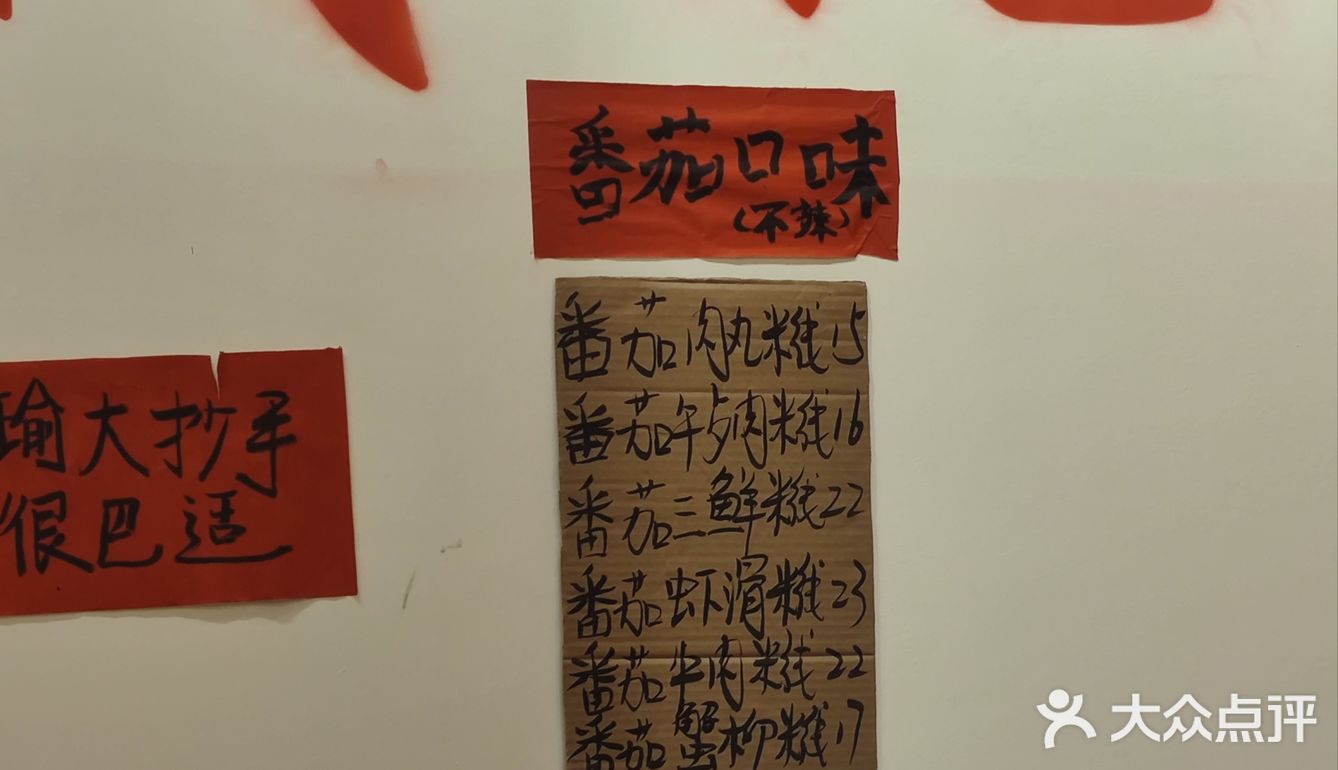 番茄口味
(不辣)
番茄肉丸米线15
番茄午歺肉米线16
番茄三鲜米线22
番茄虾滑米线23
番茄牛肉米线22
番茄蟹柳米线17
瑜大抄手
很巴适
大众点评